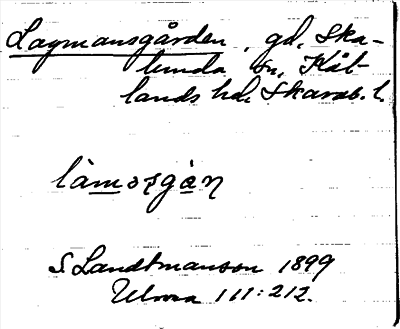 Lagmansgården, gd, Ska-
lunda sn, Kål-
lands hd, Skarab. l.
làmasgàn
S Landtmanson 1899
Ulvva III:212.